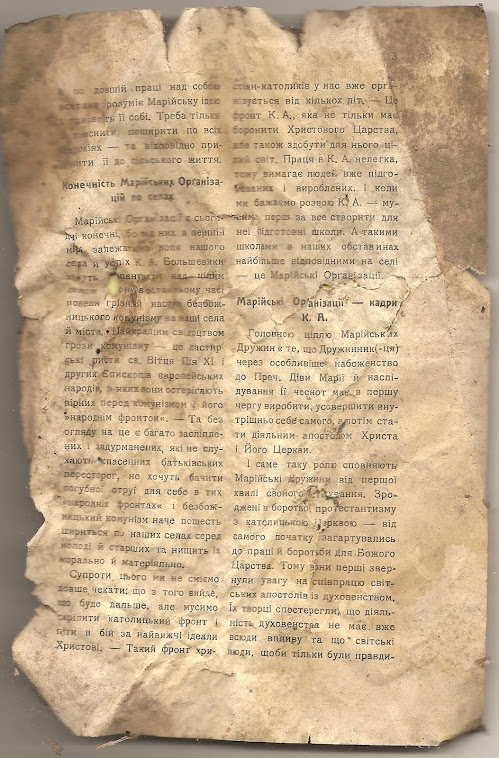 й по довшій праці над собою
зрозуміє Марійську ідею
її собі. Треба тільки
поширити по всіх
— та відповідно при-
її до сільського життя.
Конечність Марійських Орґаніза-
цій по селах
Марійські Орґанізації є сього-
дні конечні, бо від них в першій
мірі залежатиме доля нашого
села й успіх К. А. Большевики
над цілим
останньому часі
повели грізний наступ безбож-
ницького комунізму на наші села
й міста. Найкращим свідоцтвом
грози комунізму — це пастир-
ські листи св. Вітця Пія XI і
других Єпископів європейських
народів, в яких вони остерігають
вірних перед комунізмом і його
«народнім фронтом». — Та без
огляду на це є багато засліпле-
них і задурманених, які не слу-
хають спасенних батьківських
пересторог, не хочуть бачити
погубної отруї для себе в тих
«народніх фронтах» і безбож-
ницький комунізм наче пошесть
шириться по наших селах серед
молоді й старших та нищить їх
морально й матеріяльно.
Супроти цього ми не сміємо
довше чекати; що з того вийде,
що буде дальше, але мусимо
скріпити католицький фронт і
піти в бій за найвижчі ідеали
Христові. — Такий фронт хри-
стіян-католиків у нас вже орґа-
нізується від кількох літ. — Це
фронт К. А., яка не тільки має
боронити Христового Царства,
але також здобути для нього ці-
лий світ. Праця в К. А. нелегка,
тому вимагає людей вже підго-
тованих і вироблених. І коли
ми бажаємо розвою К. А. — му-
симо перш за все створити для
неї підготовні школи. А такими
школами в наших обставинах
найбільше відповідними на селі
— це Марійські Орґанізації.
Марійські Орґанізації — кадри
К. А.
Головною ціллю Марійських
Дружин є те, що Дружинник(-ця)
через особливіше набоженство
до Преч. Діви Марії й наслі-
дування Її чеснот має в першу
чергу виробити, усовершити вну-
трішньо себе самого, а потім ста-
ти діяльним апостолом Христа
і Його Церкви.
І саме таку ролю сповняють
Марійські Дружини від першої
хвилі свойого існування. Зро-
джені в боротьбі протестантизму
з католицькою Церквою — від
самого початку загартувались
до праці й боротьби для Божого
Царства. Тому вони перші звер-
нули увагу на співпрацю світ-
ських апостолів із духовенством.
Їх творці спостерегли, що діяль-
ність духовенства не має вже
всюди впливу та що світські
люди, щоби тільки були правди-